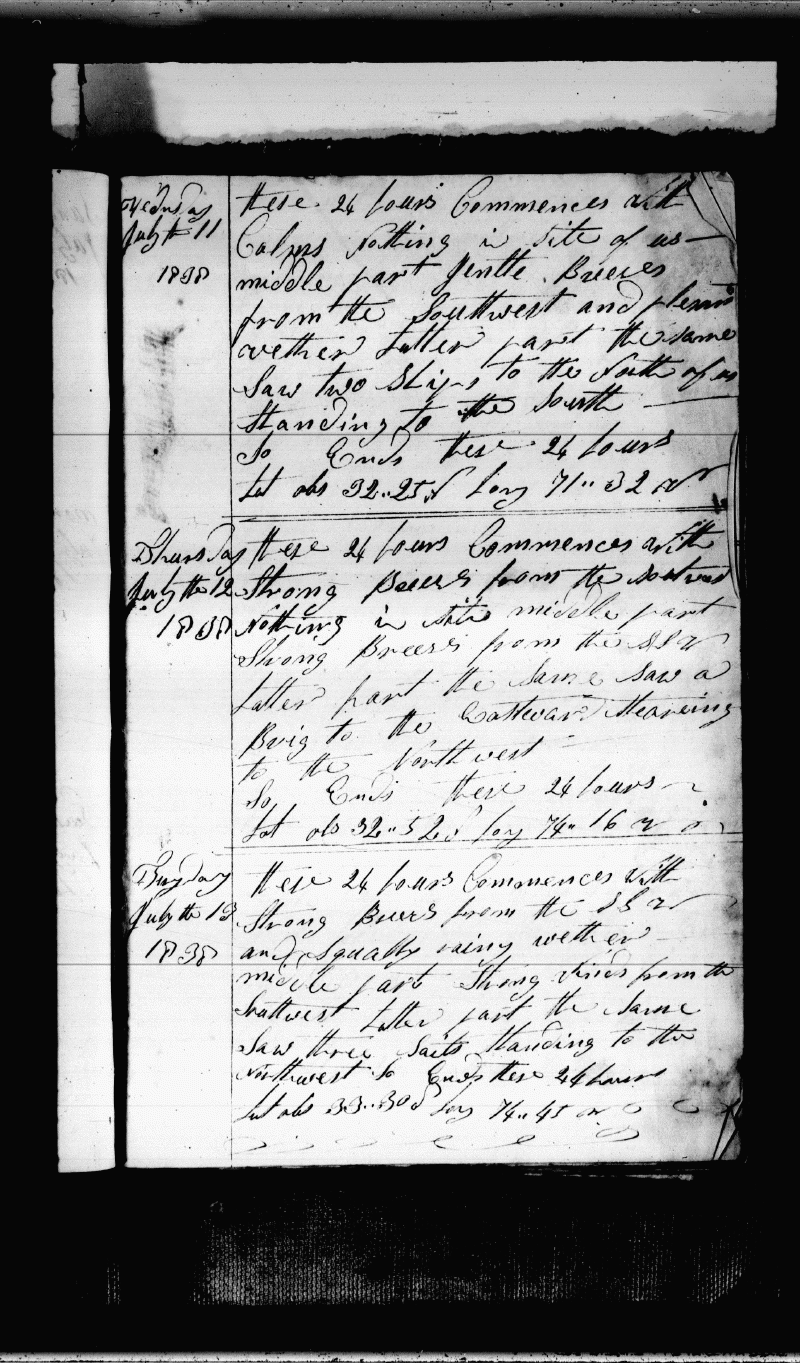 Wednsday
July th 11
1838
these 24 hours Commences with
Calms Nothing in Site of us
middle part gentle Breezes
from the Southwest and plesent
wether Latter part the same
Saw two Ships to the South of us
Standing to the South
So Ends these 24 hours
Lat obs 32..25 Long 71..32 W
Thursday
July the 12
1838
these 24 hours Commences with
Strong Breezes from the
Nothing in Site middle part
Strong Breezes from the SSW
Latter part the Same Saw a
Brig to the Eastward Stearing
to the Northwest
So Ends these 24 hours
Lat obs 32..52 Long 74..16 W
July the 13
1838
these 24 hours Commences with
Strong Breezes from the SSW
and Squally rainy wether
middle part Strong Winds from the
Southwest Latter part the Same
Saw three Sails Standing to the
Northwest So Ends these 24 hours
Lat obs 33..30 Long 74..45 W